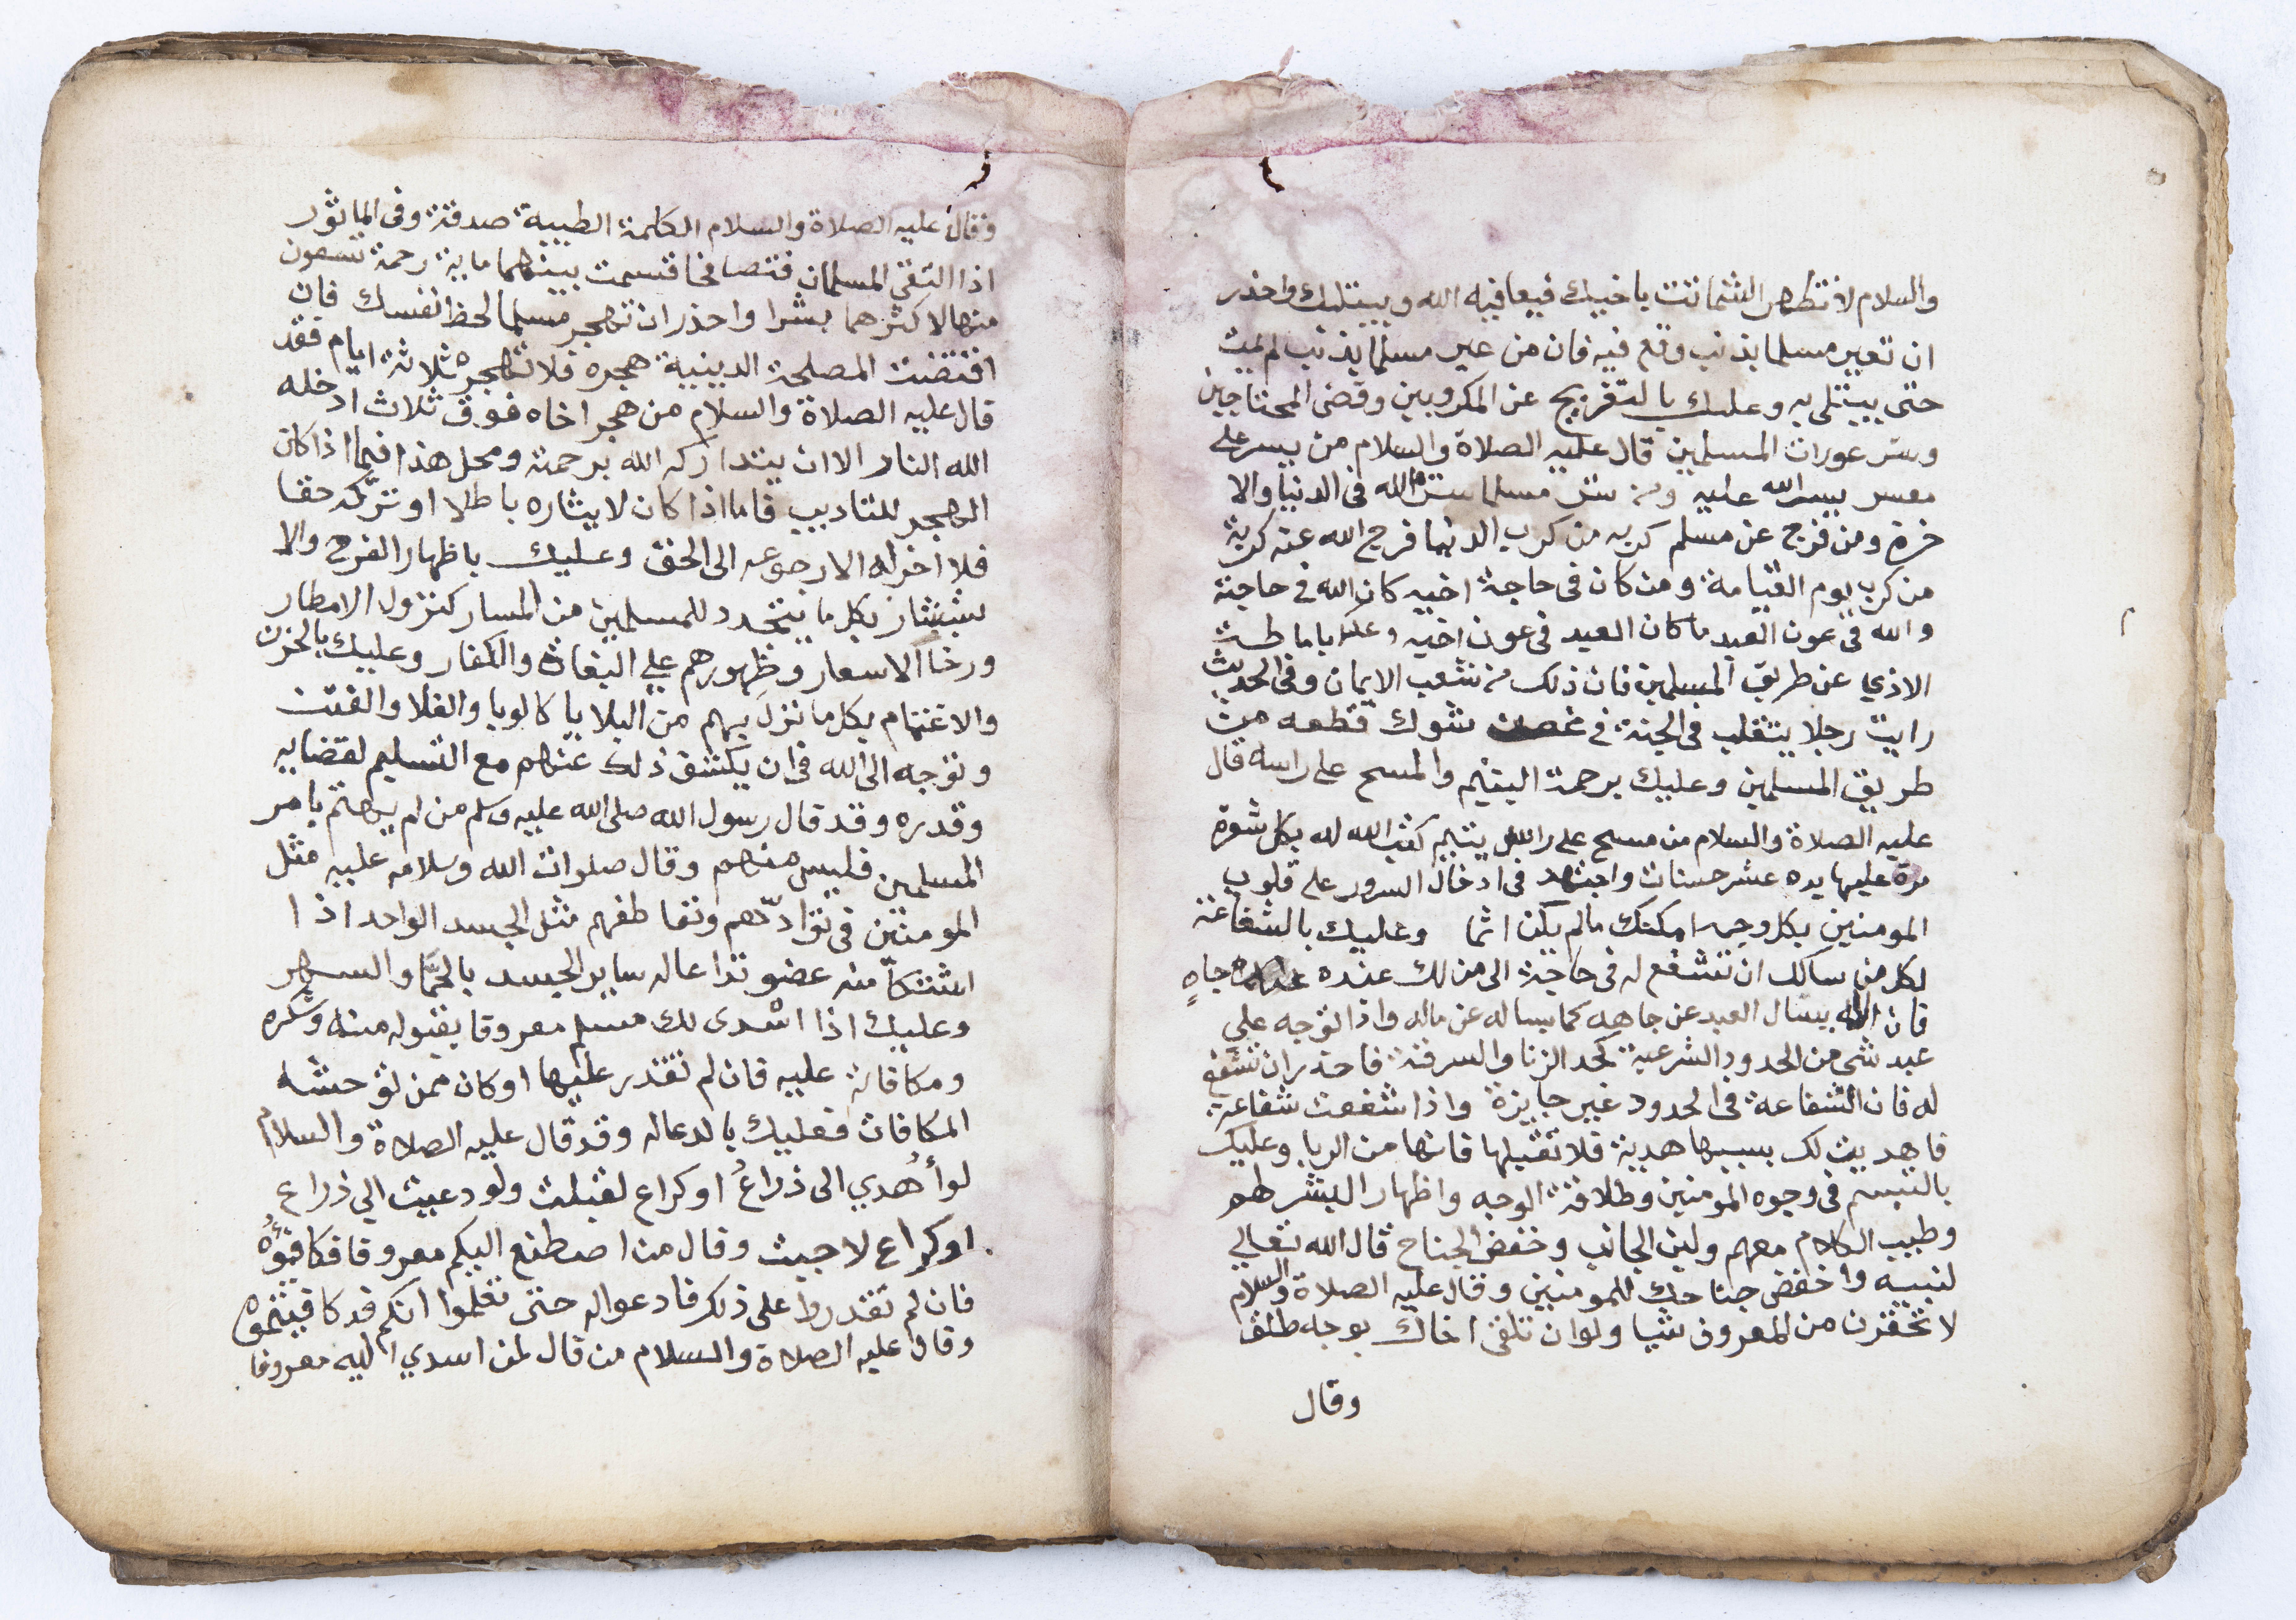 والسلام لا تظهر الشماتت باخيك فيعافيه الله ويبتليك واحذر
ان تعير مسلما بذنب وقع فيه فان من عير مسلما بذنب لم يمت
حتى يبتلى به وعليك بالتفريج عن المكروبين وقضى المحتاجين
وستر عورات المسلمين قال عليه الصلاة والسلام من يسر على
معسر يسر الله عليه ومن ستر مسلما ستره الله فى الدنيا والا
خرة ومن فرج عن مسلم كربه من كرب الدنيا فرج الله عنه كربة
من كرب يوم القيامة ومن كان فى حاجة اخيه كان الله فى حاجته
والله فى عون العبد ما كان العبد فى عون اخيه وعليك باماطت
الاذي عن طريق المسلمين فان ذلك من شعب الايمان وفى الحديث
رايت رجلا يتقلب فى الجنة فى غصن شوك قطعه من
طريق المسلمين وعليك برحمة اليتيم والمسح على راسه قال
عليه الصلاة والسلام من مسح على راس يتيم كتب الله له بكل شعرة
مرة عليها يده عشر حسنات واجتهد فى ادخال السرور على قلوب
المومنين بكل وجه امكنك مالم يكن اثما وعليك بالشفاعة
لكل من سالك ان تشفع له فى حاجة الى من لك عنده جاه
فان الله يسال العبد عن جاهه كما يساله عن ماله واذا توجه على
عبد شى من الحدود الشرعية كحد الزنا والسرقة فاحذر ان تشفع
له فان الشفاعة فى الحدود غير جايزة واذا شفعت شفاعة
فاهديت لك بسببها هدية فلا تقبلها فانها من الربا وعليك
بالتبسم فى وجوه المومنين وطلاقة الوجه واظهار البشر لهم
وطيب الكلام معهم ولين الجانب وخفض الجناح قال الله تعالي
لنبيه واخفض جناحك للمومنين وقال عليه الصلاة والسلام
لا تحقرن من المعروف شيا ولوان تلقى اخاك بوجه طلق
وقال
وقال عليه الصلاة والسلام الكلمة الطيبة صدقة وفى الماثور
اذا التقى المسلمان فتصافحا قسمت بينهما ماية رحمة تسعون
منها لاكثرهما بشرا واحذر ان تهجر مسلما لحظ نفسك فان
اقتضت المصلحة الدينية هجره فلا تهجره ثلاثة ايام فقد
قال عليه الصلاة والسلام من هجر اخاه فوق ثلاث ادخله
الله النار الا ان يتداركه الله برحمته ومحل هذا فيما اذا كان
الهجر للتاديب فاما اذا كان لايثاره باطلا او تركه حقا
فلا اخر له الا رجوعه الى الحق وعليك باظهار الفرح والا
ستبشار بكل ما يتجدد للمسلمين من المسار كنزول الامطار
ورخا الاسعار وظهورهم علي البغاة والكفار وعليك بالحزن
والاغتمام بكل ما نزل بهم من البلايا كالوبا والغلا والفتن
وتوجه الى الله فى ان يكشف ذلك عنهم مع التسليم لقضايه
وقدره وقد قال رسول الله صلى الله عليه وسلم من لم يهتم بامر
المسلمين فليس منهم وقال صلوات الله وسلامه عليه مثل
المومنين فى توادّهم وتعاطفهم مثل الجسد الواحد اذا
اشتكا منه عضو تداعا له ساير الجسد بالحمّا والسهر
وعليك اذا اسدى لك مسلم معروفا بقبوله منه وشكره
ومكافاته عليه فان لم تقدر عليها او كان ممن توحشه
المكافات فعليك بالدعا له وقد قال عليه الصلاة والسلام
لو أُهدي الى ذراعُ او كراع لقبلت ولو دعيت الي ذراع
او كراع لاجبت وقال من اصطنع اليكم معروفا فكافئوُه
فان لم تقدروا على ذلك فادعواله حتى تعلموا انكم قد كافيتموه
وقال عليه الصلاة والسلام من قال لمن اسدي اليه معروفا